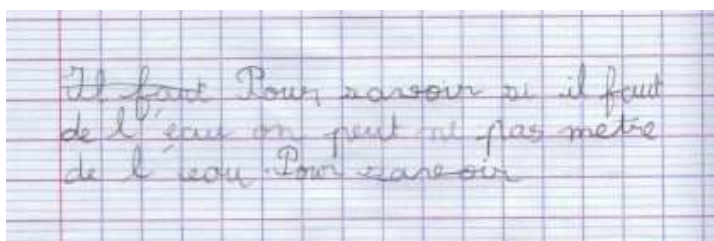 Il faut Pour savoir si il faut
de l'eau on peut ne pas metre
de l'eau. Pour savoir